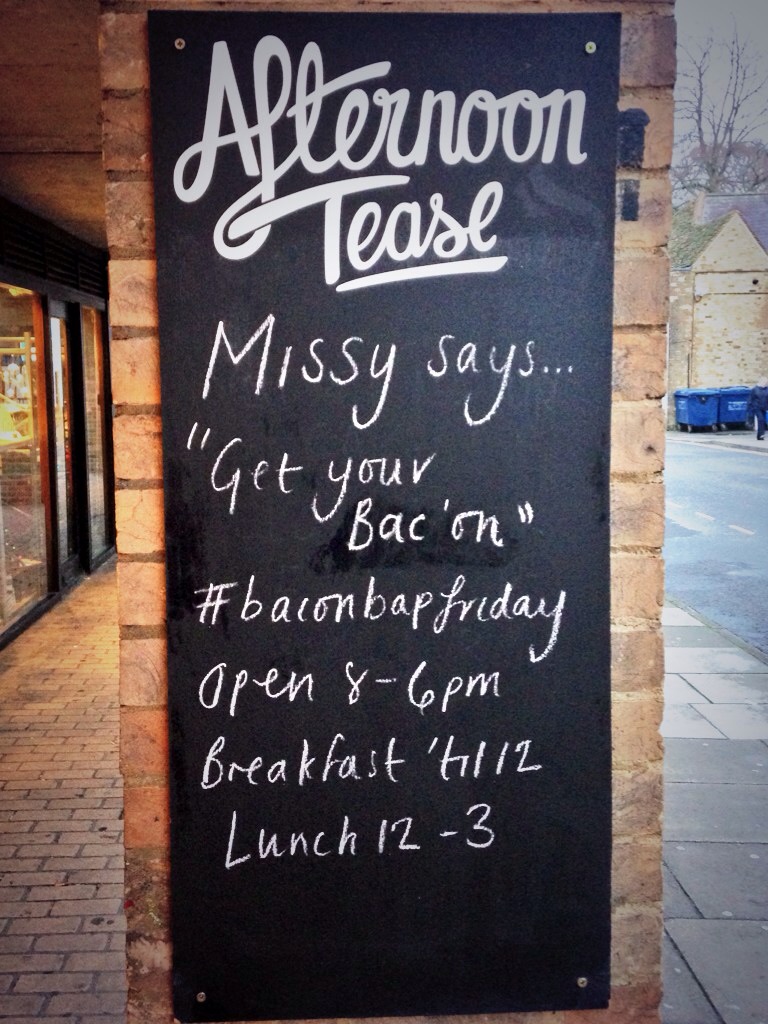 Afternoon
Tease
Missy says...
"Get your
Bac'on"
#baconbapfriday
Open 8-6pm
Breakfast 'til 12
Lunch 12-3